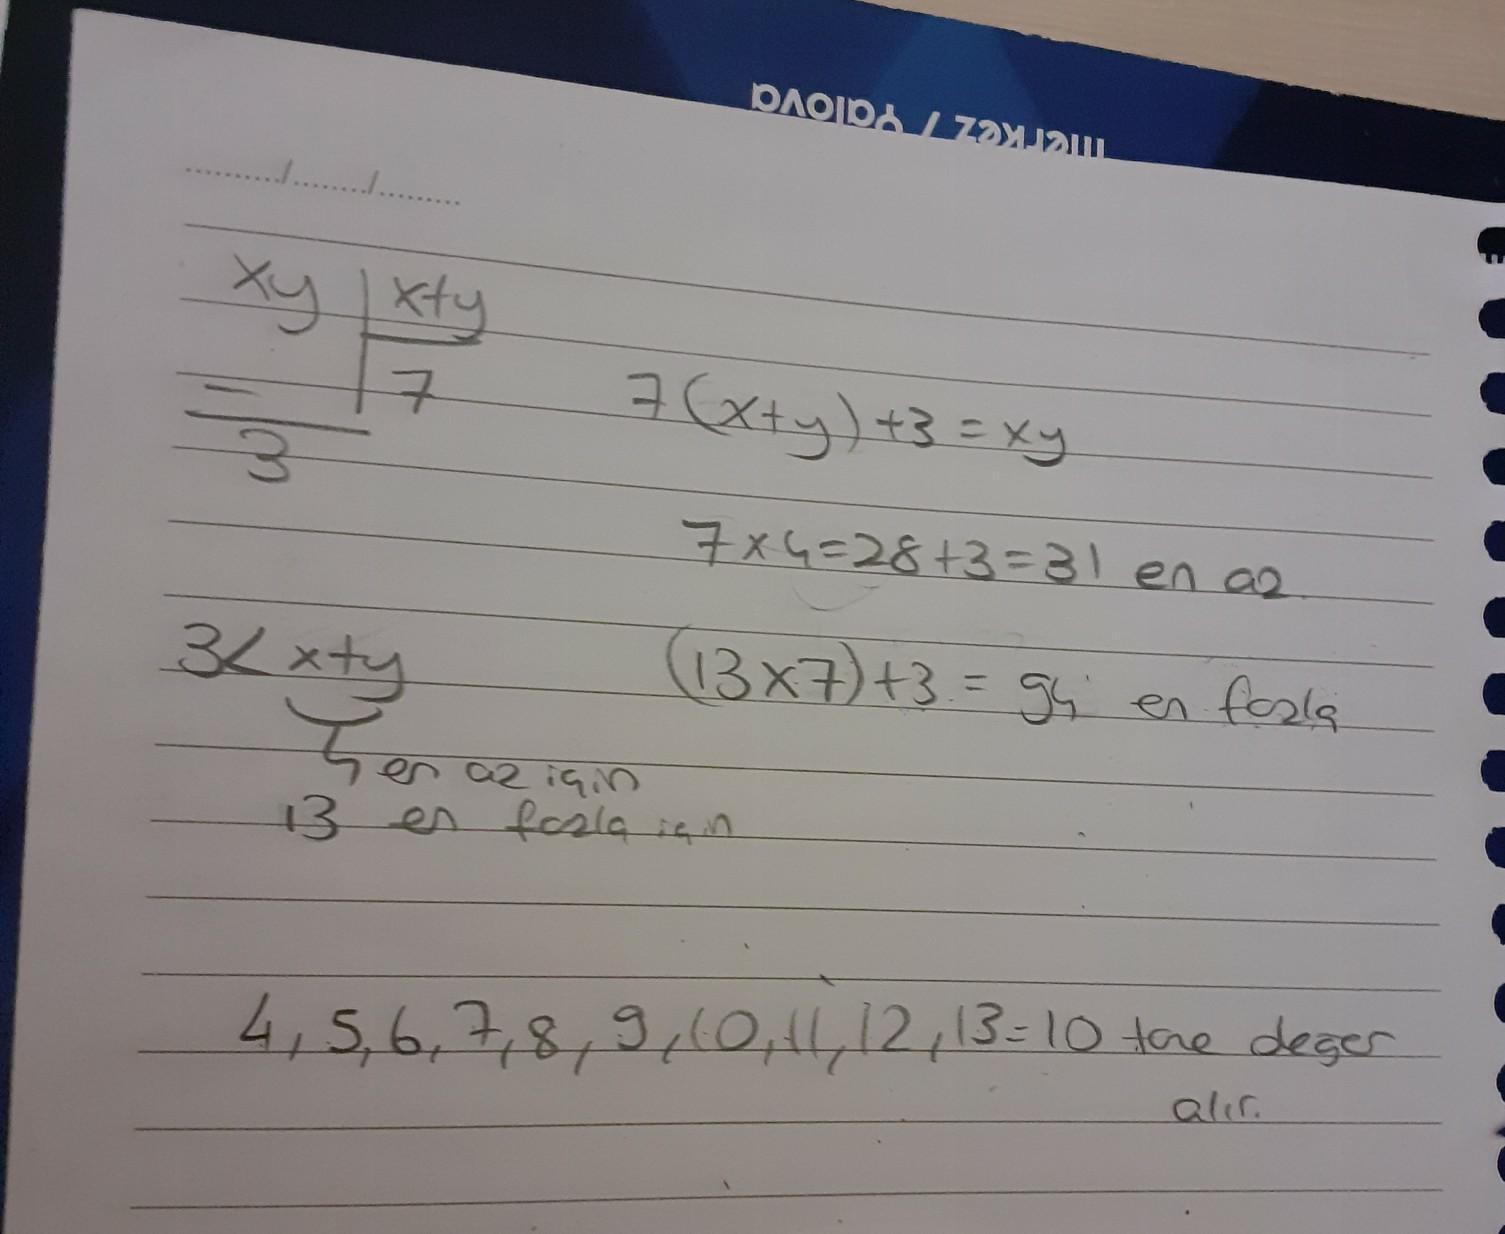 merkez / Yalova
........../........./.........
xy | x+y
7
3
7(x+y)+3=xy
7x4=28+3=31 en az
3< x+y
(13x7)+3=94 en fazla
4 en az için
13 en fazla için
4,5,6,7,8,9,10,11,12,13=10 tane deger
alır.